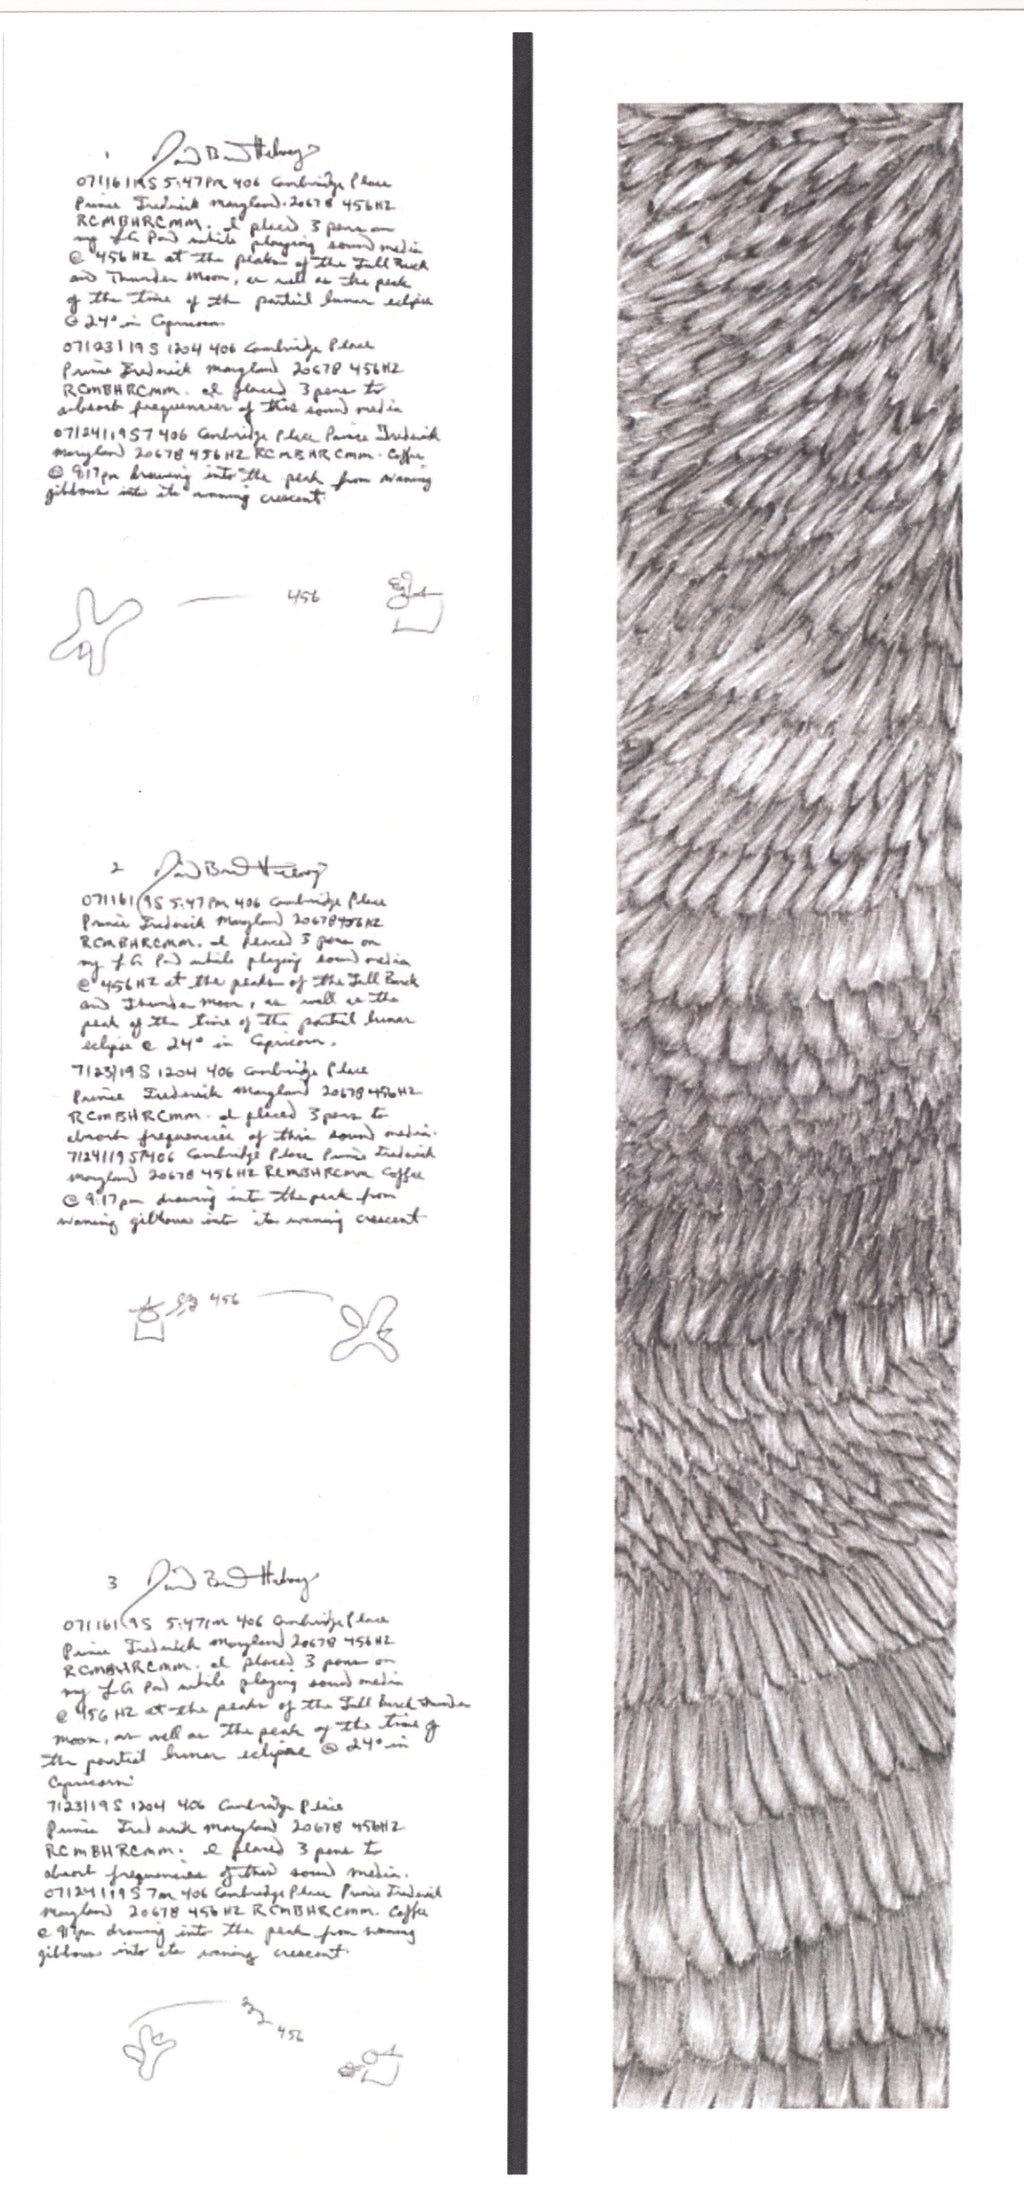 1 David Brand Helvey
07/16/19 S 5:47PM 406 Cambridge Place
Prince Frederick Maryland 20678 456HZ
RCMBHRCMM. I placed 3 pens on
my LG Pad while playing sound media
@ 456HZ at the peaks of the Full Buck
and Thunder Moon, as well as the peak
of the time of the partial lunar eclipse
@ 24° in Capricorn
07/23/19 S 1204 406 Cambridge Place
Prince Frederick Maryland 20678 456HZ
RCMBHRCMM. I placed 3 pens to
absorb frequencies of this sound media
07/24/19 S7 406 Cambridge Place Prince Frederick
Maryland 20678 456HZ RCMBHRCMM. Coffee
@ 9:17pm drawing into the peak from waning
gibbous into its waning crescent
456
2 David Brand Helvey
07/16/19S 5:47PM 406 Cambridge Place
Prince Frederick Maryland 20678 456HZ
RCMBHRCMM. I placed 3 pens on
my LG Pad while playing sound media
@ 456HZ at the peaks of the Full Buck
and Thunder Moon, as well as the
peak of the time of the partial lunar
eclipse @ 24° in Capricorn.
7/23/19 S 1204 406 Cambridge Place
Prince Frederick Maryland 20678 456HZ
RCMBHRCMM. I placed 3 pens to
absorb frequencies of this sound media.
7/24/19 S7 406 Cambridge Place Prince Frederick
Maryland 20678 456HZ RCMBHRCMM Coffee
@ 9:17pm drawing into the peak from
waning gibbous into its waning crescent
456
3 David Brand Helvey
07/16/19S 5:47PM 406 Cambridge Place
Prince Frederick Maryland 20678 456HZ
RCMBHRCMM. I placed 3 pens on
my LG Pad while playing sound media
@ 456 HZ at the peaks of the Full Buck Thunder
Moon, as well as the peak of the time of
the partial lunar eclipse @ 24° in
Capricorn
7/23/19 S 1204 406 Cambridge Place
Prince Frederick Maryland 20678 456HZ
RCMBHRCMM. I placed 3 pens to
absorb frequencies of this sound media.
07/24/19 S 7 406 Cambridge Place Prince Frederick
Maryland 20678 456 HZ RCMBHRCMM. Coffee
@ 9:17pm drawing into the peak from waning
gibbous into its waning crescent.
456